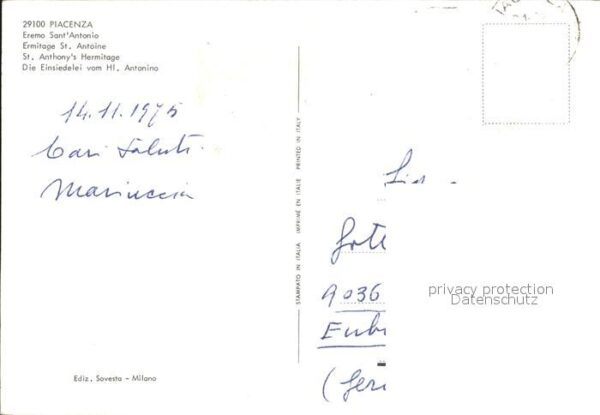 29100 PIACENZA
Eremo Sant'Antonio
Ermitage St. Antoine
St. Anthony's Hermitage
Die Einsiedelei vom Hl. Antonino
14.11.1975
Cari Saluti
Mariuccia
STAMPATO IN ITALIA IMPRIMÉ EN ITALIE PRINTED IN ITALY
9036
privacy protection
Datenschutz
Ediz. Sovesta - Milano